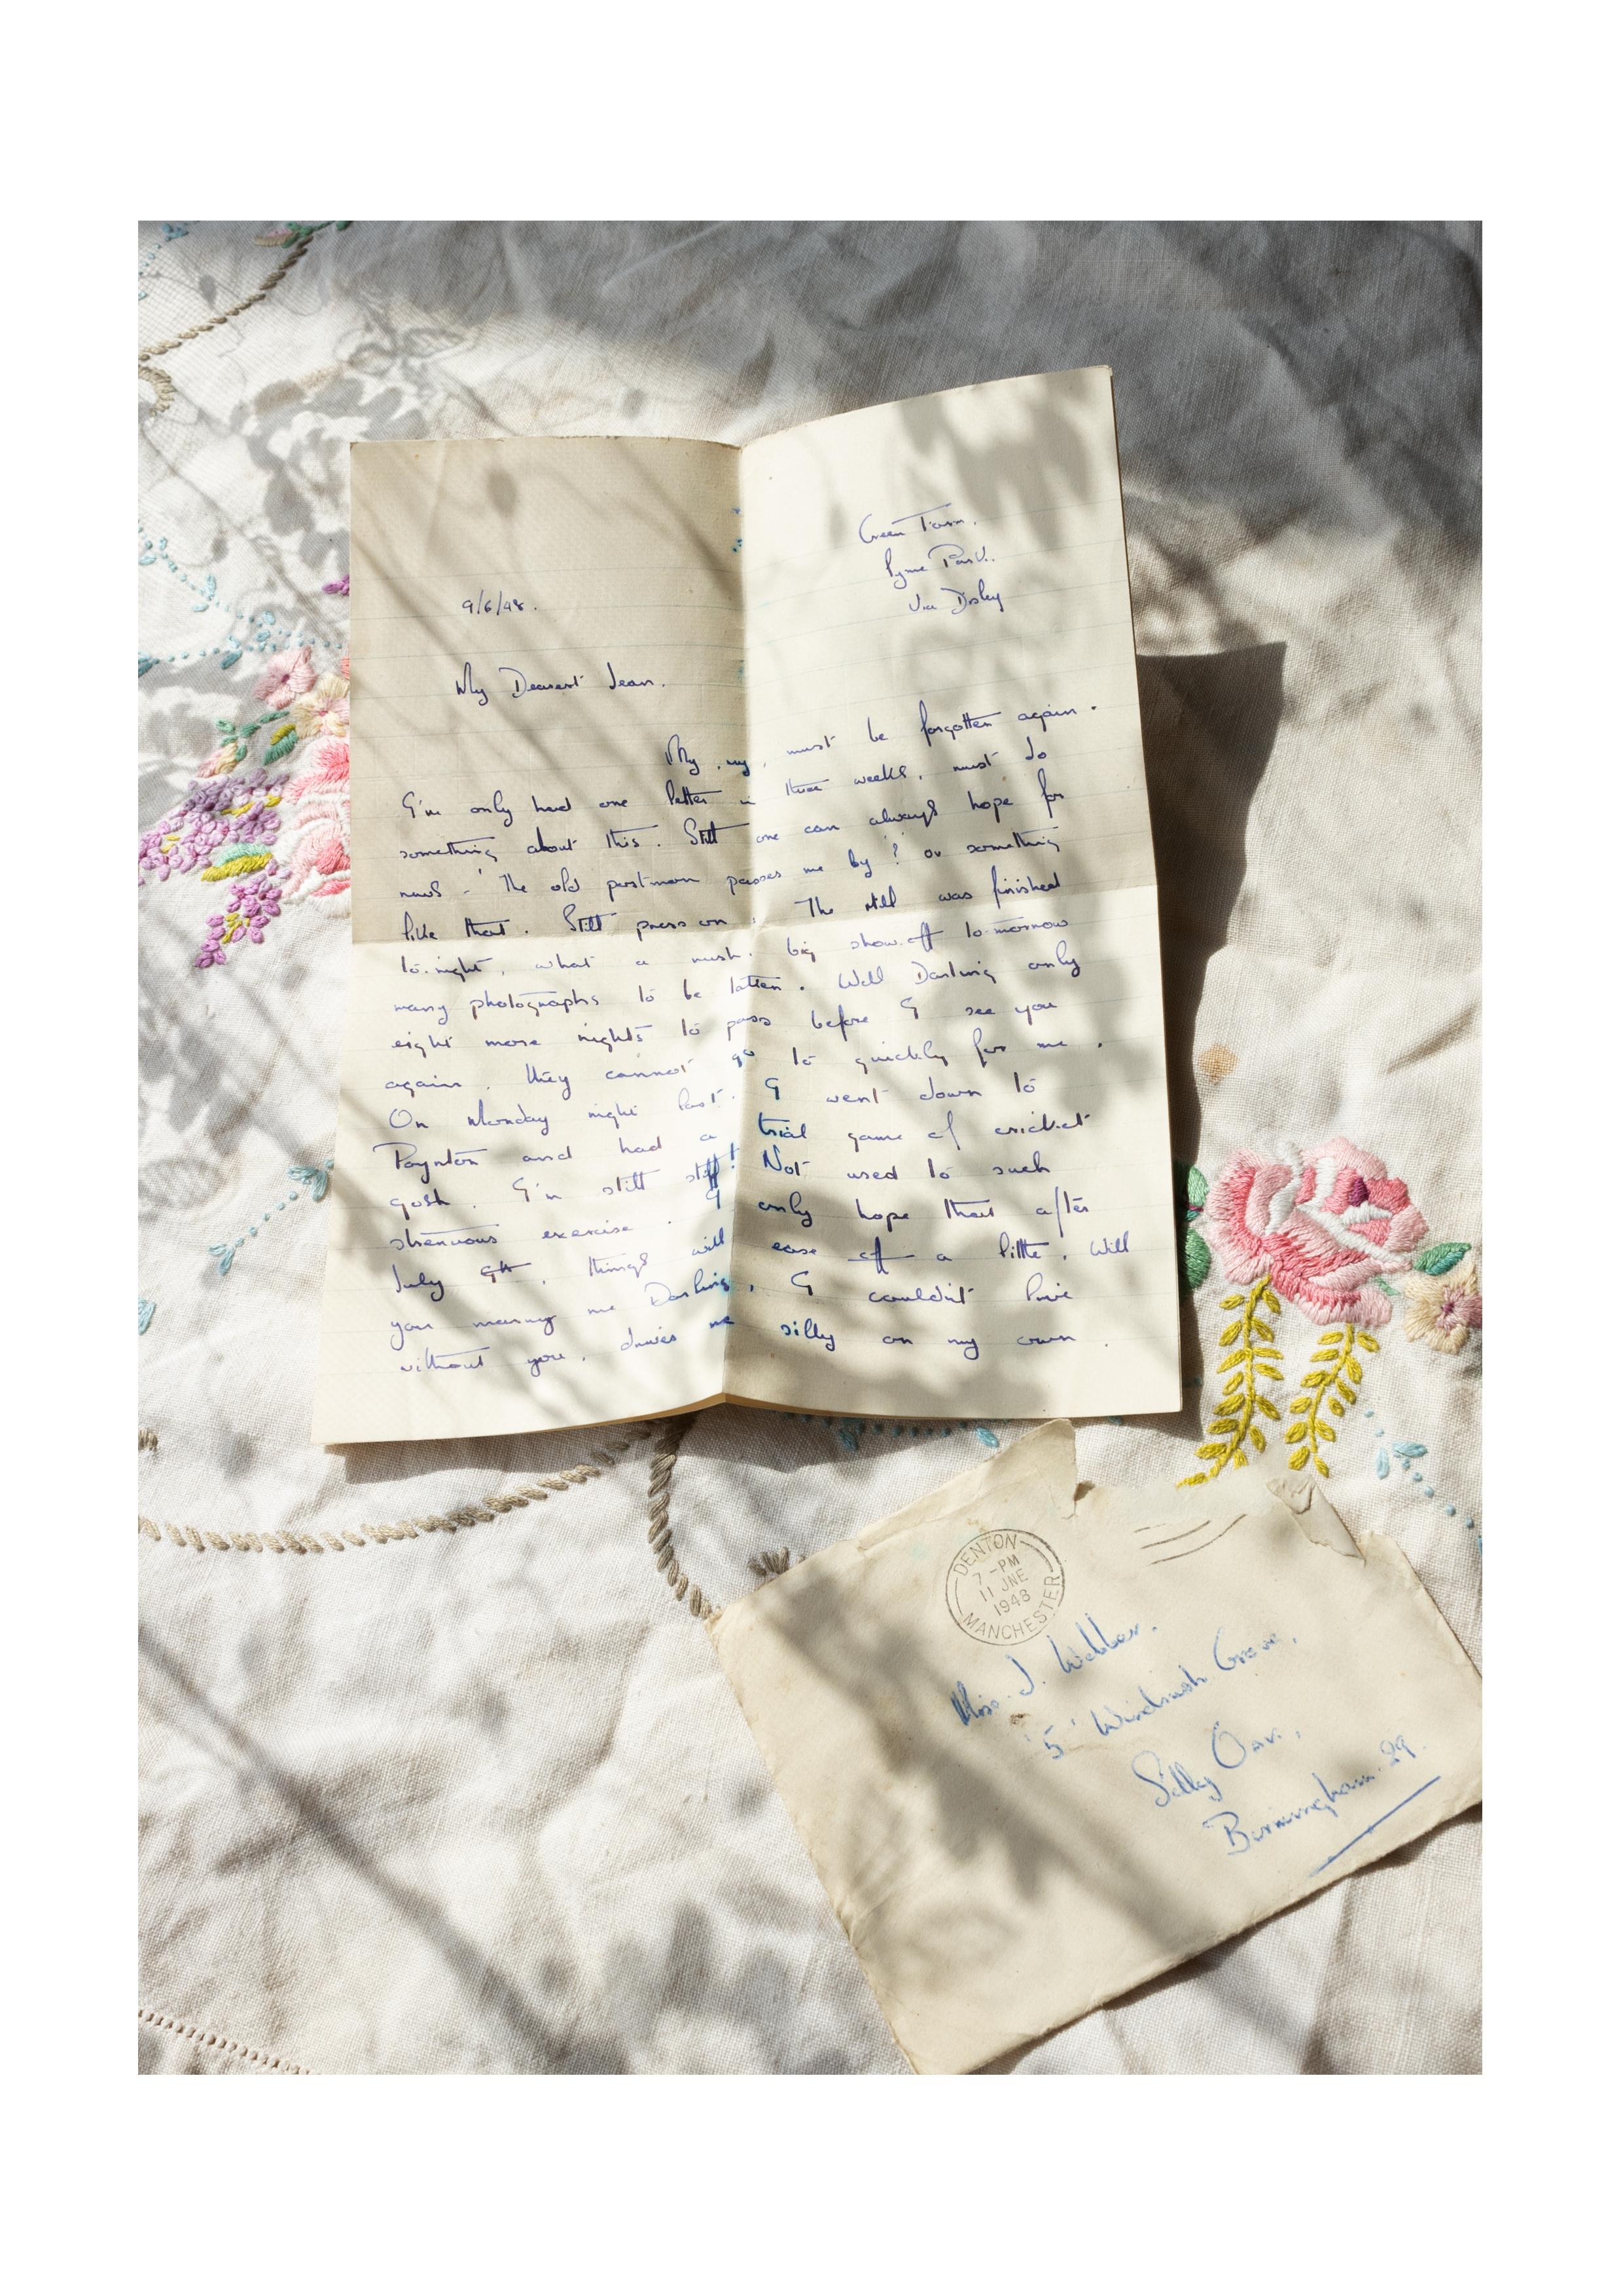 Green Farm.
Lyme Park.
Via Disley
9/6/48.
My Dearest Jean.
My, my, must be forgotten again.
I'm only had one letter in three weeks, must do
something about this. Still one can always hope for
news - ' The old postman passes me by ? or something
like that. Still press on. The still was finished
to-night, what a rush. big show-off to-morrow
many photographs to be taken. Well Darling only
eight more nights to pass before I see you
again. they cannot go to quickly for me.
On Monday night last. I went down to
Poynton and had a trial game of cricket
gosh. I'm still stiff! Not used to such
strenuous exercise. I only hope that after
July 9th, things will ease off a little. Will
you marry me Darling, I couldn't live
without you. drives me silly on my own.
DENTON
7-PM
11 JNE
1948
MANCHESTER
Miss. J. Webber.
'5' Windrush Grove,
Selly Oak,
Birmingham. 29.